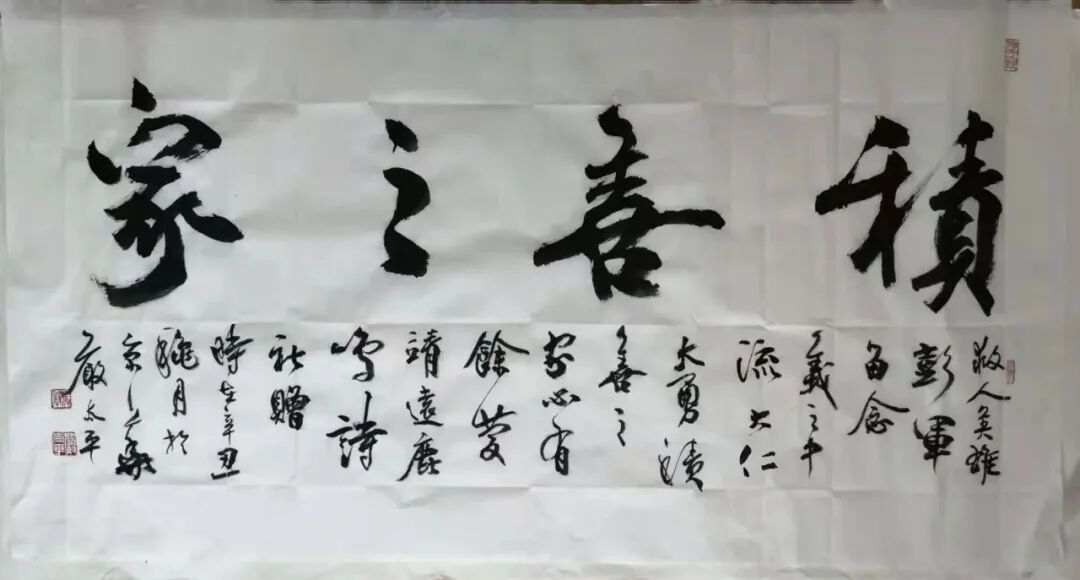 積善之家
救人英雄
彭軍
留念
義之中
流大仁
大勇積
善之
家必有
餘慶
靖遠鹿
鳴詩
社贈
時在辛丑
月於
京華
嚴太平